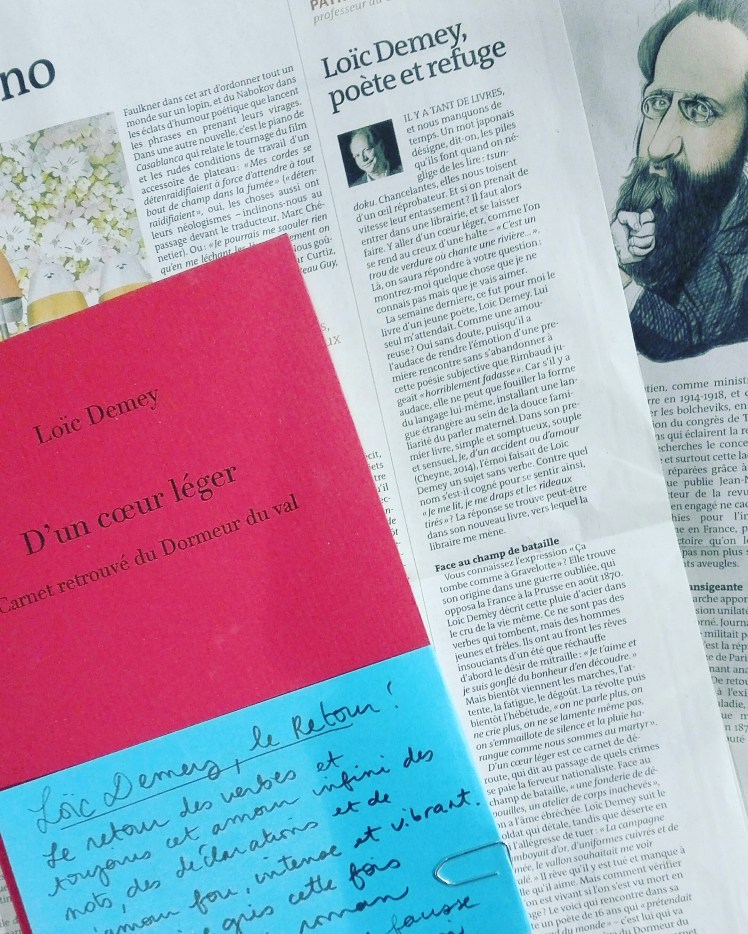 no
Faulkner dans cet art d'ordonner tout un
monde sur un lopin, et du Nabokov dans
les éclats d'humour poétique que lancent
les phrases en prenant leurs virages.
Dans une autre nouvelle, c'est le piano de
Casablanca qui relate le tournage du film
et les rudes conditions de travail d'un
accessoire de plateau : « Mes cordes se
détenraidifiaient à force d'attendre à tout
bout de champ dans la fumée » (« déten-
raidifiaient », oui, les choses aussi ont
leurs néologismes – inclinons-nous au
passage devant le traducteur, Marc Ché-
netier). Ou : « Je pourrais me saouler rien
qu'en me léchant les
professeur au
Loïc Demey,
poète et refuge
IL Y A TANT DE LIVRES,
et nous manquons de
temps. Un mot japonais
désigne, dit-on, les piles
qu'ils font quand on né-
glige de les lire : tsun-
doku. Chancelantes, elles nous toisent
d'un œil réprobateur. Et si on prenait de
vitesse leur entassement ? Il faut alors
entrer dans une librairie, et se laisser
faire. Y aller d'un cœur léger, comme l'on
se rend au creux d'une halte – « C'est un
trou de verdure où chante une rivière... ».
Là, on saura répondre à votre question :
montrez-moi quelque chose que je ne
connais pas mais que je vais aimer.
La semaine dernière, ce fut pour moi le
livre d'un jeune poète, Loïc Demey. Lui
seul m'attendait. Comme une amou-
reuse ? Oui sans doute, puisqu'il a
l'audace de rendre l'émotion d'une pre-
mière rencontre sans s'abandonner à
cette poésie subjective que Rimbaud ju-
geait « horriblement fadasse ». Car s'il y a
audace, elle ne peut que fouiller la forme
du langage lui-même, installant une lan-
gue étrangère au sein de la douce fami-
liarité du parler maternel. Dans son pre-
mier livre, simple et somptueux, souple
et sensuel, Je, d'un accident ou d'amour
(Cheyne, 2014), l'émoi faisait de Loïc
Demey un sujet sans verbe. Contre quel
nom s'est-il cogné pour se sentir ainsi,
« Je me lit, je me draps et les rideaux
tirés » ? La réponse se trouve peut-être
dans son nouveau livre, vers lequel la
libraire me mène.
Face au champ de bataille
Vous connaissez l'expression « Ça
tombe comme à Gravelotte » ? Elle trouve
son origine dans une guerre oubliée, qui
opposa la France à la Prusse en août 1870.
Loïc Demey décrit cette pluie d'acier dans
le cru de la vie même. Ce ne sont pas des
verbes qui tombent, mais des hommes
jeunes et frêles. Ils ont au front les rêves
insouciants d'un été que réchauffe
d'abord le désir de mitraille : « Je t'aime et
je suis gonflé du bonheur d'en découdre. »
Mais bientôt viennent les marches, l'at-
tente, la fatigue, le dégoût. La révolte puis
bientôt l'hébétude, « on ne parle plus, on
ne crie plus, on ne se lamente même pas,
on s'emmaillote de silence et la pluie ha-
rangue comme nous sommes au martyr ».
D'un cœur léger est ce carnet de dé-
route, qui dit au passage de quels crimes
se paie la ferveur nationaliste. Face au
champ de bataille, « une fonderie de dé-
pouilles, un atelier de corps inachevés »,
on a l'âme ébréchée. Loïc Demey suit le
soldat qui détale, tandis que déserte en
l'allégresse de tuer : « La campagne
d'or, d'uniformes cuivrés et de
le vallon souhaitait me voir
Il rêve qu'il y est tué et manque à
qu'il aime. Mais comment vérifier
on est vivant si l'on s'est vu mort en
? Le voici qui rencontre dans sa
te un poète de 16 ans qui « prétendait
du monde » – c'est lui qui va
du Dormeur du
Loïc Demey
D'un cœur léger
Carnet retrouvé du Dormeur du val
Loïc Demey, le Retour !
Le retour des verbes et
toujours cet amour infini des
mots, des déclarations et de
l'amour fou, intense et vibrant.
gris cette fois
roman
fausse
tien, comme minist
re en 1914-1918, et
er les bolcheviks, en
on du congrès de T
s qui éclairent la re
echerches le conce
et surtout cette la
réparées grâce à
que publie Jean-N
teur de la revu
en engagé ne cac
hies pour l'in
e en France, p
ctoire qu'on l
pas non plus s
ts aveugles.
ansigeante